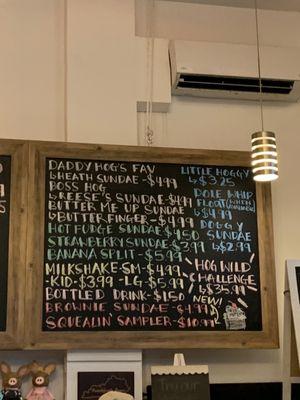 DADDY HOG'S FAV
↳HEATH SUNDAE-$4.99
BOSS HOG
↳REESE'S SUNDAE-$4.99
BUTTER ME UP SUNDAE
↳BUTTERFINGER-$4.99
HOT FUDGE SUNDAE-$4.50
STRAWBERRY SUNDAE-$3.99
BANANA SPLIT-$5.99
MILKSHAKE-SM-$4.99
-KID-$3.99-LG-$5.99
BOTTLED DRINK-$1.50
BROWNIE SUNDAE-$4.99
SQUEALIN SAMPLER-$10.99
LITTLE HOGGY
↳$3.25
DOLE WHIP
FLOAT (WHEN AVAILABLE)
↳$4.99
DOGGY
SUNDAE
↳$2.99
HOG WILD
CHALLENGE
↳$35.99
NEW!
TRY OUR